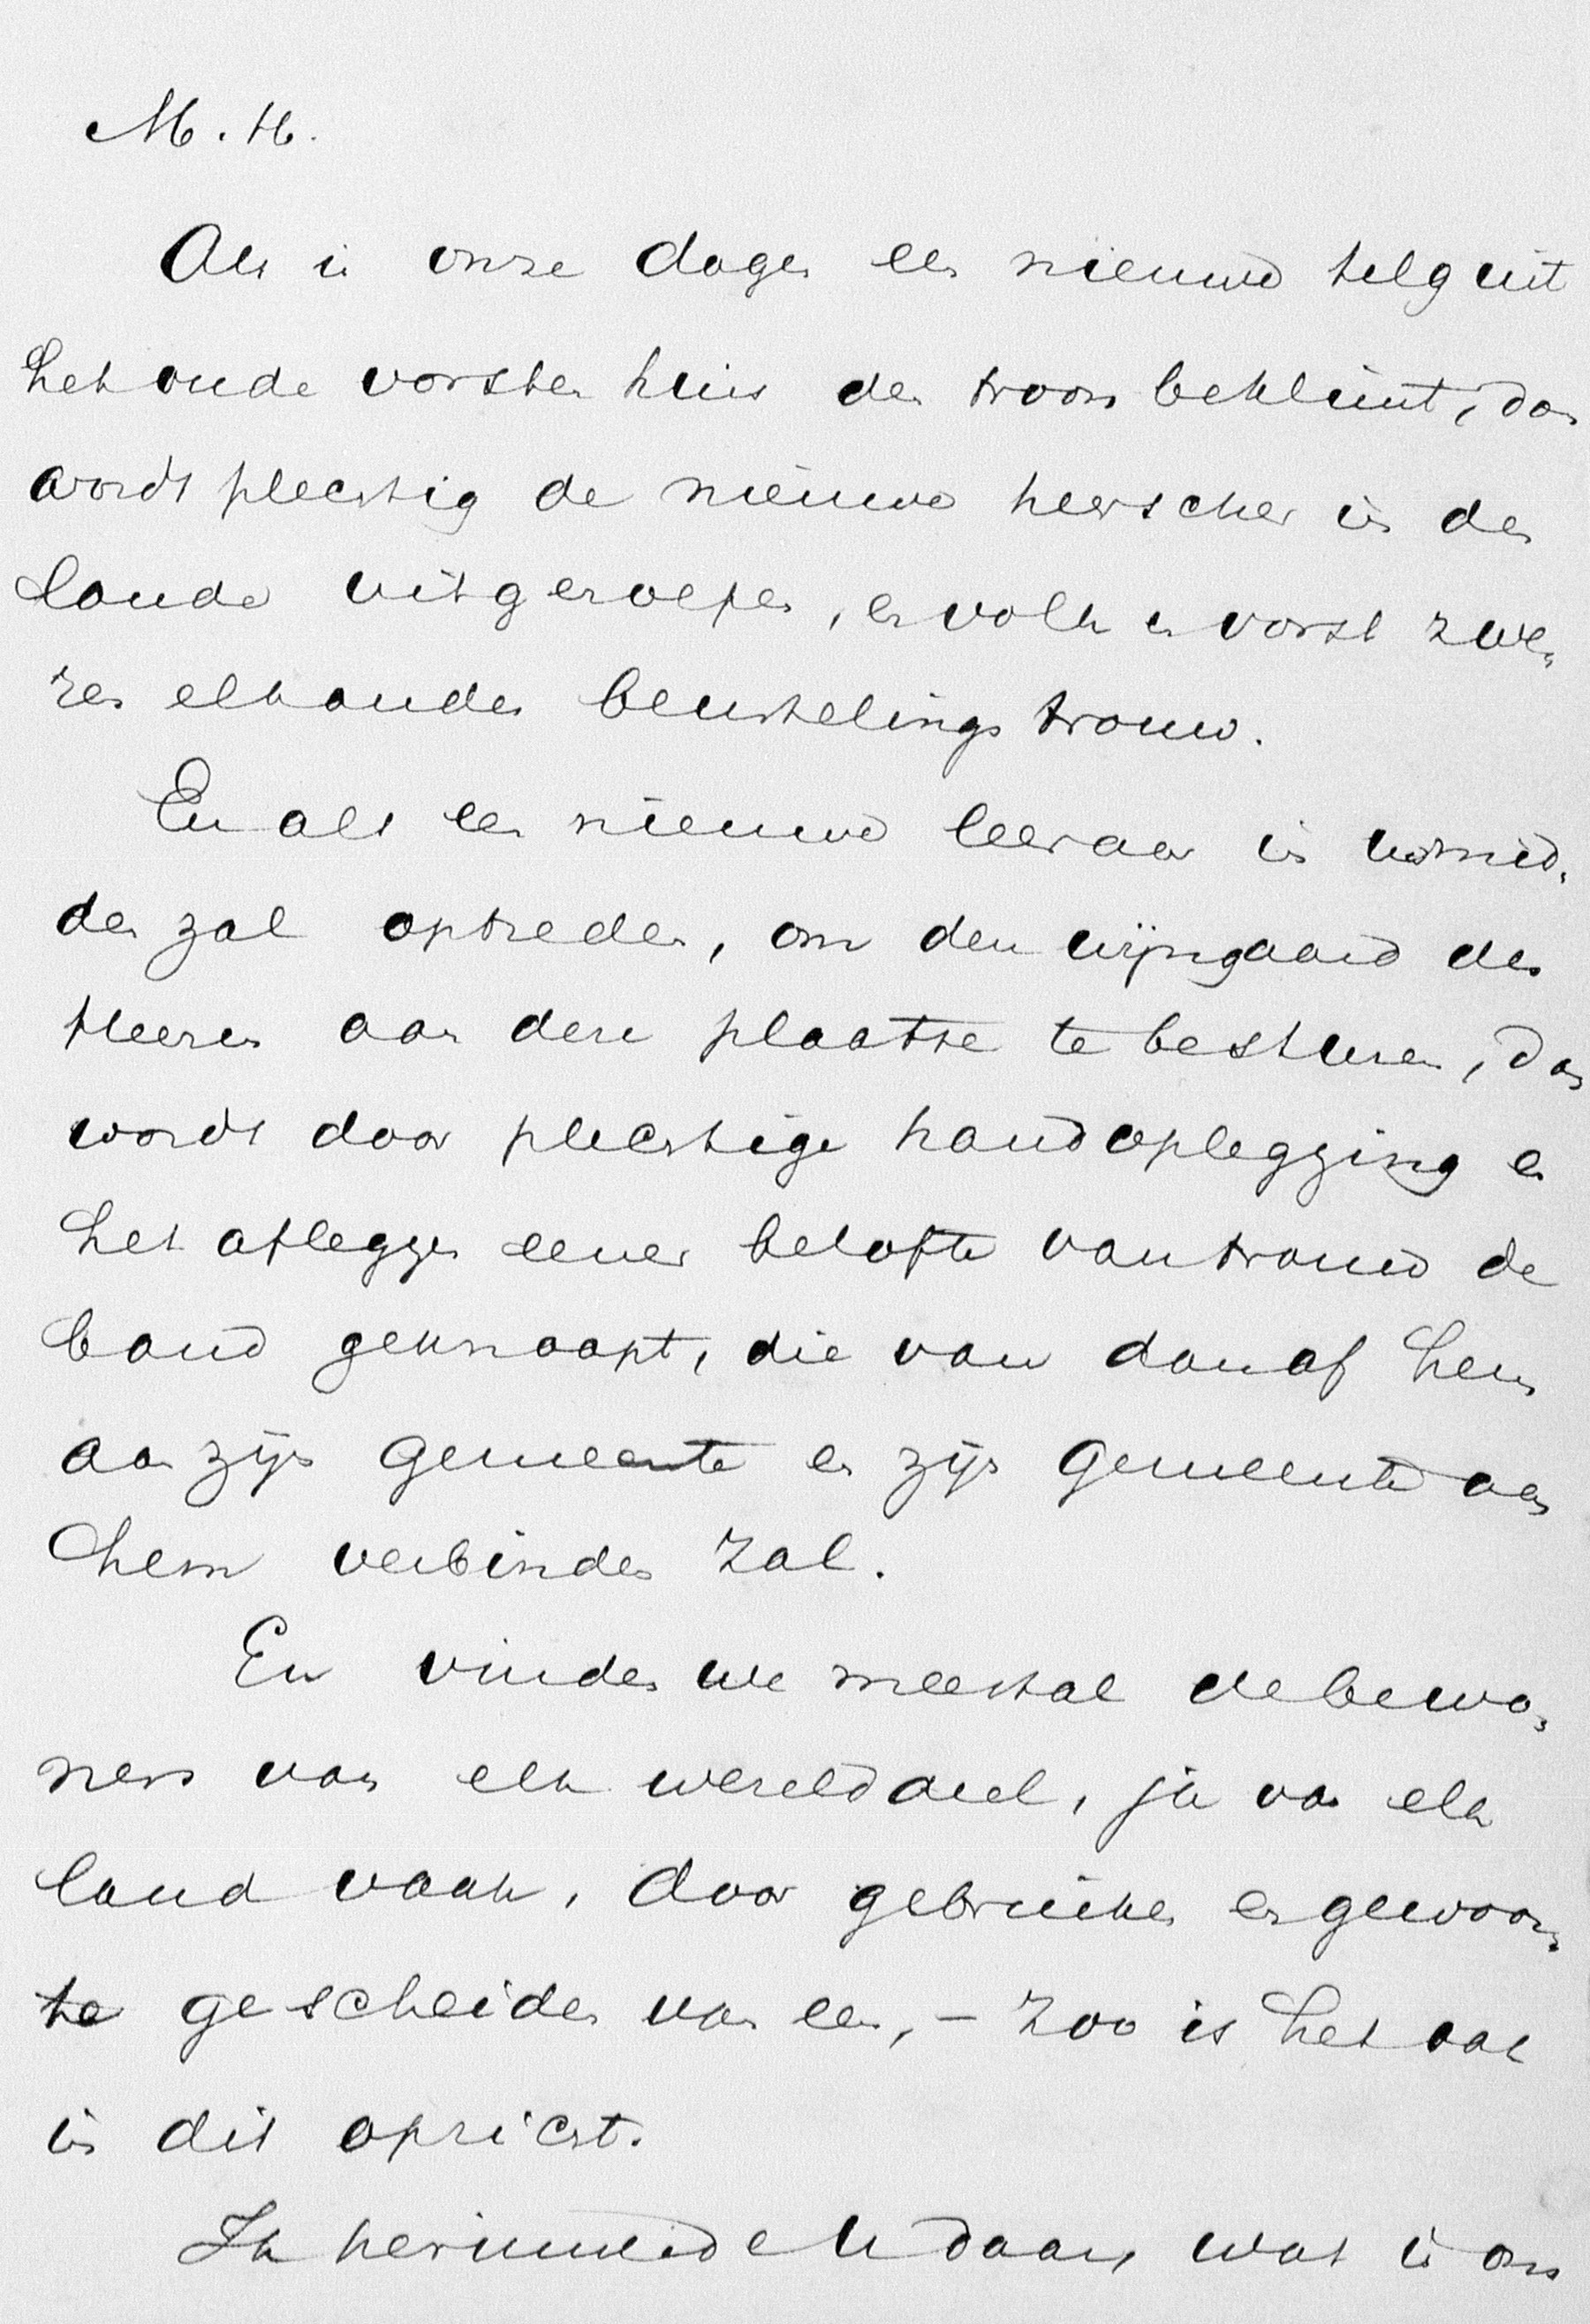 M. H.
Als in onze dagen een nieuwe telg uit
het oude vorstenhuis den troon beklimt, dan
wordt plechtig de nieuwe heerscher in den
lande uitgeroepen, en volk en vorst zwe-
ren elkander beurtelings trouw.
En als een nieuwe leeraar in uw mid-
den zal optreden, om den wijngaard des
Heeren aan dere plaatse te besturen, dan
wordt door plechtige handoplegging en
het afleggen eener belofte van trouw de
band geknoopt, die van dan af hem
aan zijn gemeente en zijn gemeente aan
hem verbinden zal.
En vinden we meestal de bewo-
ners van elk werelddeel, ja van elk
land vaak, door gebruiken en gewoon-
te gescheiden van een, - zoo is het ook
in dit opzicht.
Ik herinnerde U daar, wat in ons